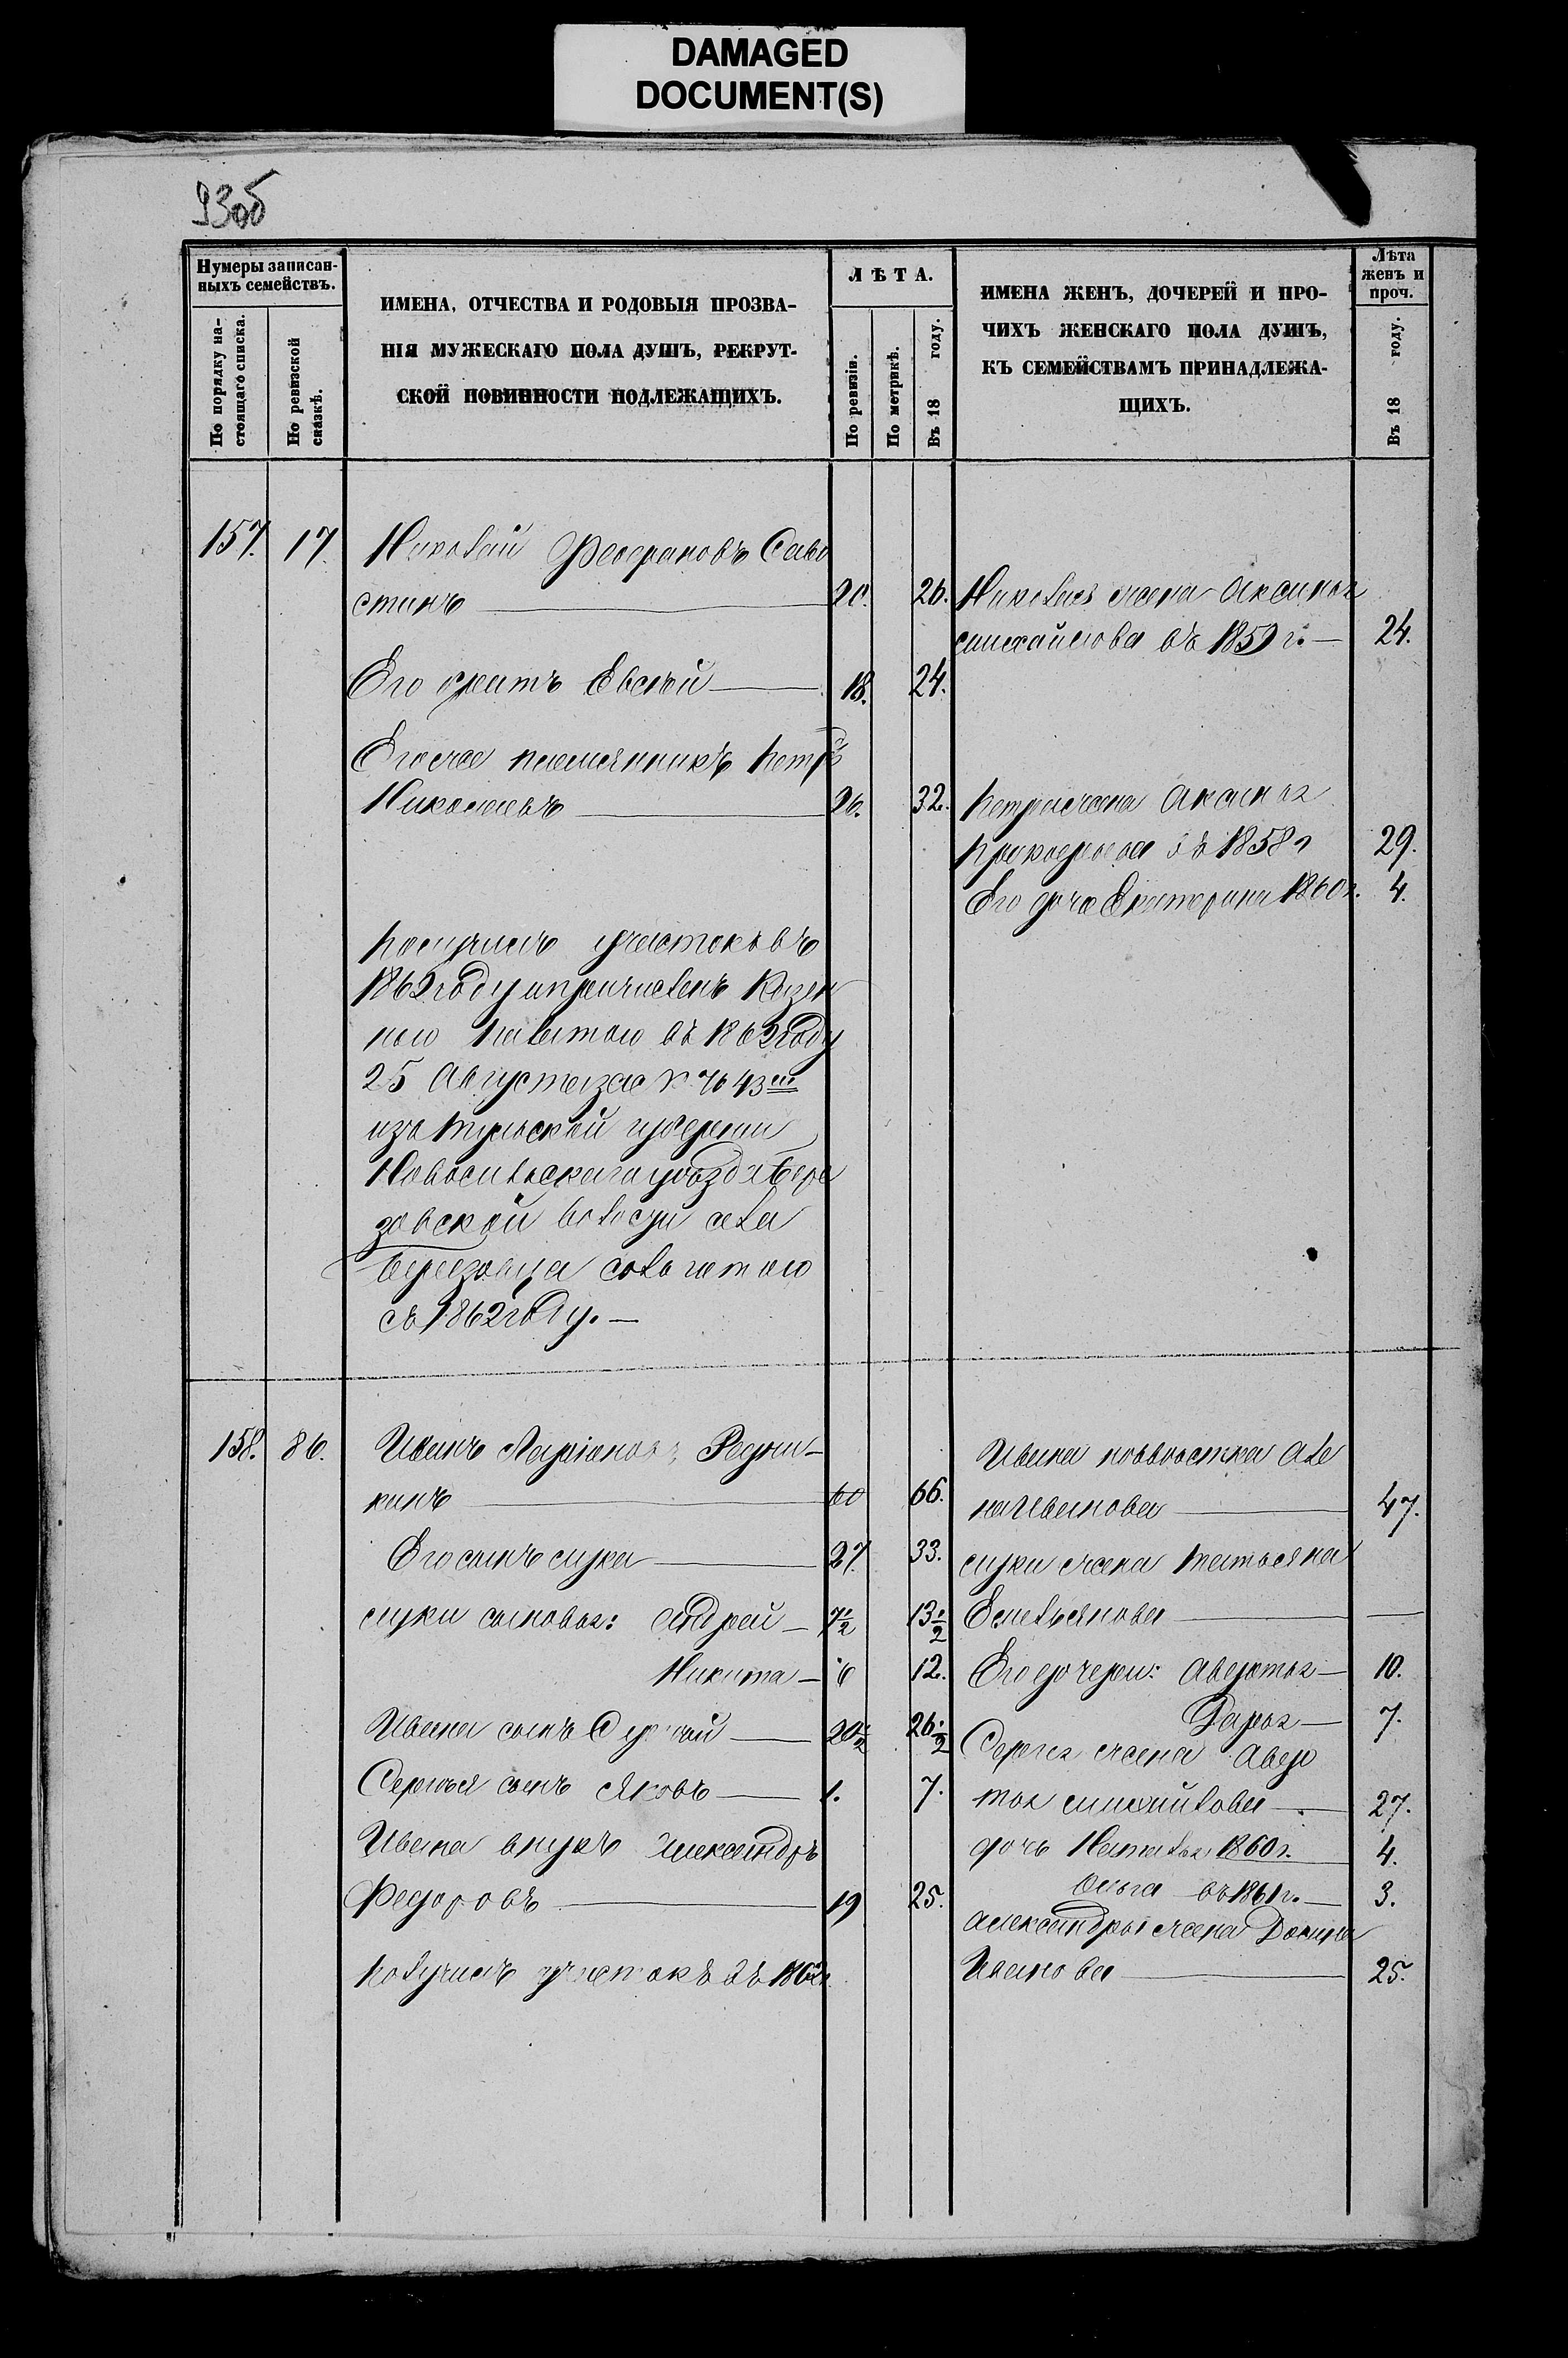 DAMAGED
DOCUMENT(S)
93об
Нумеры записан-
ныхъ семействъ.
По порядку на-
стоящаго списка.
По ревизской
сказкѣ.
ИМЕНА, ОТЧЕСТВА И РОДОВЫЯ ПРОЗВА-
НІЯ МУЖЕСКАГО ПОЛА ДУШЪ, РЕКРУТ-
СКОЙ ПОВИННОСТИ ПОДЛЕЖАЩИХЪ.
ЛѢТА.
По ревизіи.
По метрикѣ.
Въ 18 году.
ИМЕНА ЖЕНЪ, ДОЧЕРЕЙ И ПРО-
ЧИХЪ ЖЕНСКАГО ПОЛА ДУШЪ,
КЪ СЕМЕЙСТВАМЪ ПРИНАДЛЕЖА-
ЩИХЪ.
Лѣта
женъ и
проч.
Въ 18 году.
157. 17. Николай Саво
стинъ — 20. 26.
Николая жена Аксинья
Михайлова въ 1859 г. — 24.
Его братъ Евсѣй — 18. 24.
Егоже племянникъ Петръ
Николаевъ — 26. 32.
Петра жена Аксинья
Прокофьева въ 1858 г 29.
Его дочь Екатерина 1860 г. 4.
Получилъ участокъ въ
1862 году и причисленъ Казен
ною Палатою въ 1862 году
25 Августа за № 7643 м
изъ Тульской губерніи
Новосильскаго уѣзда Бере
зовской волости села
Березовца
съ 1862 году. —
158. 86. Иванъ Ларіоновъ Редки-
кинъ — 60 66.
Ивана Але
на Иванова — 47.
Его сынъ Лука — 27. 33.
Луки жена Татьяна
Емельянова — —
Луки сыновья: Андрей — 7½ 13½
Никита — 6 12.
Его дочери: Авдотья — 10.
Дарья — 7.
Ивана сынъ Сергѣй — 20½ 26½
Сергѣя жена Авдо
тья Михайлова — 27.
Сергѣя сынъ Яковъ — 1. 7.
дочь Наталья 1860 г. 4.
Ольга въ 1861 г. — 3.
Ивана внукъ Александръ
Федоровъ — 19 25.
Александры жена Домна
Иванова — 25.
Получилъ участокъ въ 1862 г.